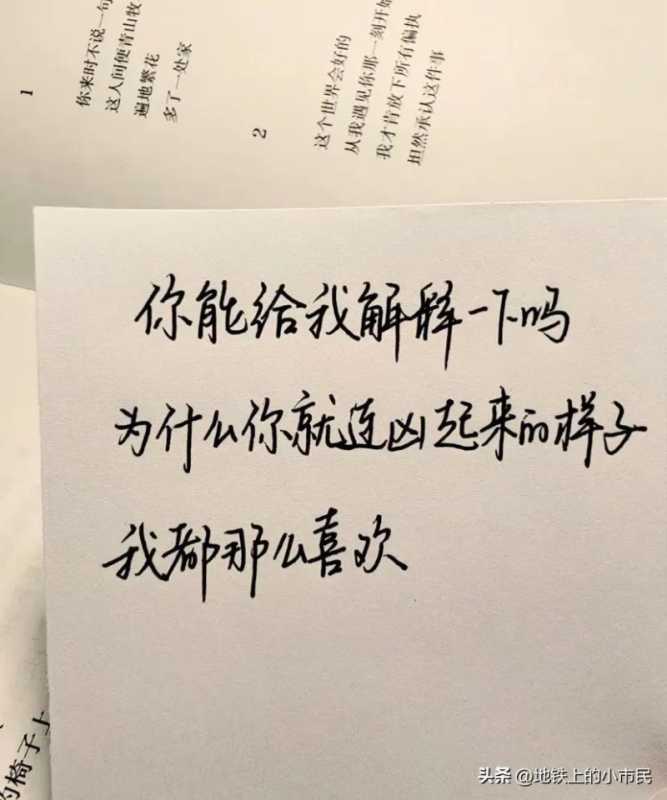 1
你来时不说一句
这人间便青山牧
遍地繁花
多了一处家
2
这个世界会好的
从我遇见你那一刻开始
我才肯放下所有偏执
坦然承认这件事
你能给我解释一下吗
为什么你就连凶起来的样子
我都那么喜欢
的椅子上
头条 @地铁上的小市民